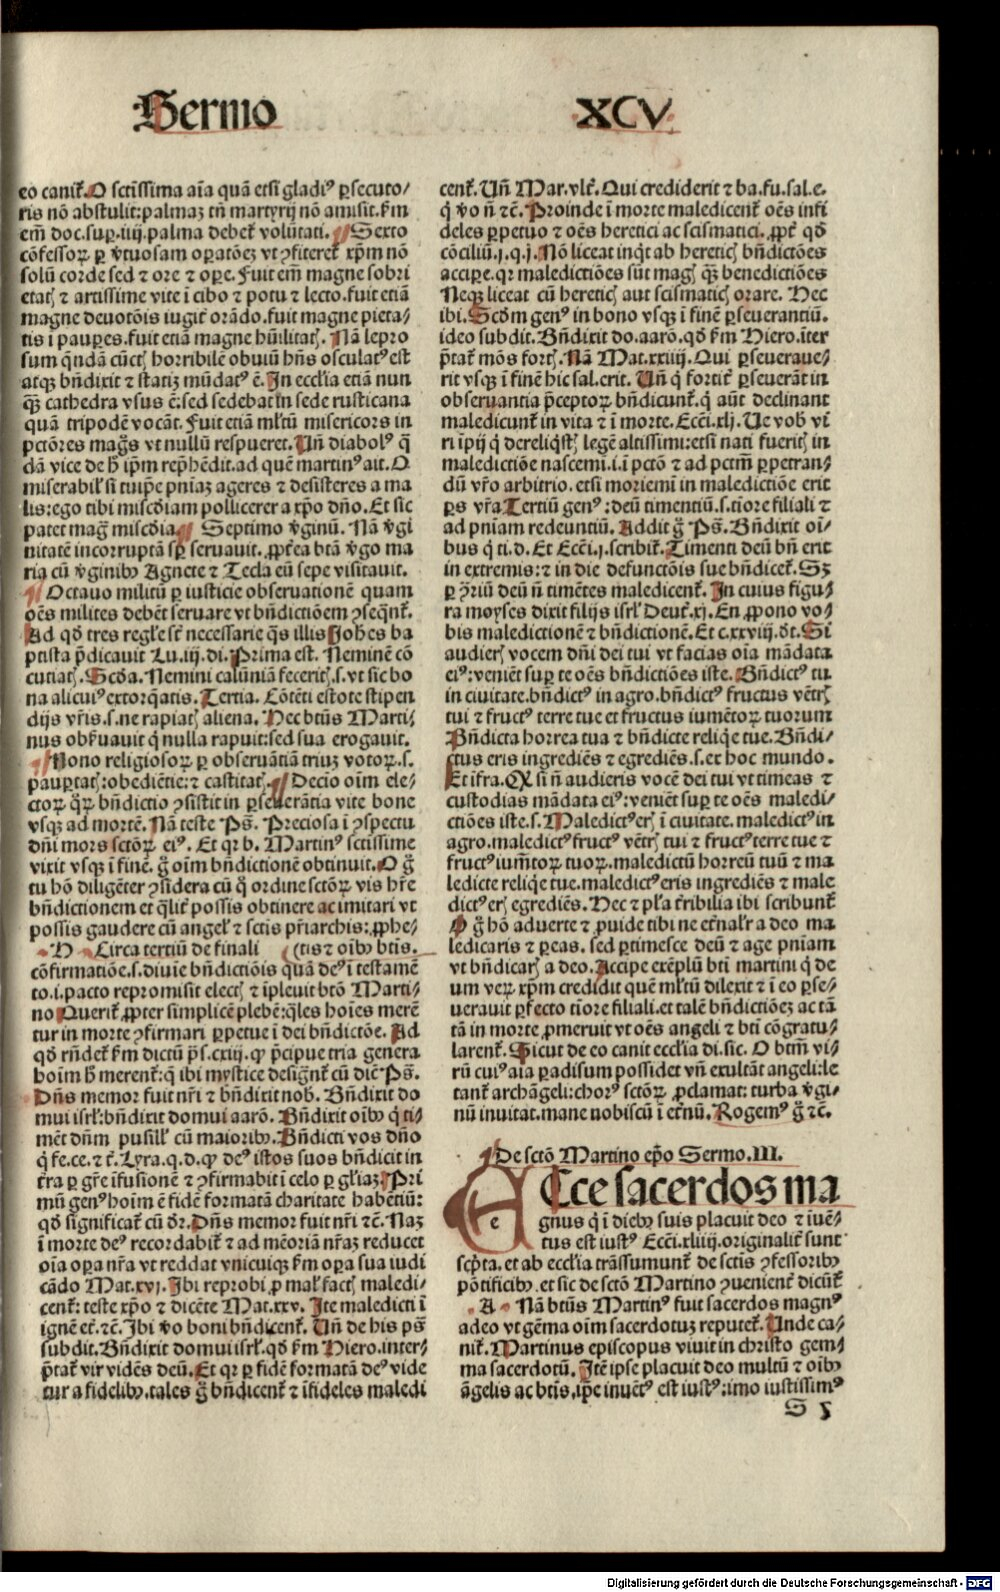 Sermo XCV
eo canit᷑. O sctissima aīa quā etsi gladiꝰ ꝑsecuto/
ris nō abstulit: palmaꝫ tn̄ martyrij nō amisit. ẜm
em̄ doc. suꝑ. iiij. palma debet᷑ volūtati. Sexto
cōfessoꝝ ꝑ v̓tuosam oꝑatōeꝫ vt ꝯfiteret᷑ xp̄m nō
solū corde sed ⁊ ore ⁊ oꝑe. Fuit em̄ magne sobri
etatꝭ ⁊ artissime vite ī cibo ⁊ potu ⁊ lecto. fuit etiā
magne deuotōis iugit᷑ orādo. fuit magne pieta/
tis ī pauꝑes. fuit etiā magne hūilitatꝭ. Nā lepro
sum q̄ndā cūctꝭ horribilē obuiū hn̄s osculatꝰ est
atqꝫ bn̄dixit ⁊ statiꝫ mūdatꝰ ē. In eccl̓ia etiā nun
q̄ꝫ cathedra vsus ē: sed sedebat in sede rusticana
quā tripodē vocāt. Fuit etiā ml̓tū misericors in
pctōres mag̓s vt nullū respueret. Vn̄ diabolꝰ q̄
dā vice de h̓ ip̄m rep̄hēdit. ad quē martinꝰ ait. O
miserabil̓ si tuip̄e pn̄iaꝫ ageres ⁊ desisteres a ma
lis: ego tibi miscd̓iam pollicerer a xp̄o dn̄o. Et sic
patet mag̓ miscd̓ia. Septimo v̓ginū. Nā v̓gi
nitatē incorruptā sꝑ seruauit. ꝓpt̓ea btā v̓go ma
ria cū v̓ginibꝫ Agnete ⁊ Tecla eū sepe visitauit.
Octauo militū ꝑ iusticie obseruationē quam
oēs milites debēt seruare vt bn̄dictiōem ꝯseqn̄t᷑.
Ad qd̓ tres regl̓e st̄ necessarie q̄s illis Joh̓es ba
ptista p̄dicauit Lu. iij. di. Prima est. Neminē cō
cutiatꝭ. Scd̓a. Nemini calūniā feceritꝭ. s. vt sic bo
na alicuiꝰ extorq̄atis. Tertia. Cōtēti estote stipen
dijs vr̄is. s. ne rapiatꝭ aliena. Hec btūs Marti/
nus obẜuauit q̄ nulla rapuit: sed sua erogauit.
Nono religiosoꝝ ꝑ obseruātiā triuꝫ votoꝝ. s.
pauꝑtatꝭ: obediētie: ⁊ castitatꝭ. Decio oīm ele/
ctoꝝ q̄ꝝ bn̄dictio ꝯsistit in ꝑseuerātia vite bone
vsqꝫ ad mortē. Nā teste Ps̄. Preciosa ī ꝯspectu
dn̄i mors sctōꝝ eiꝰ. Et qꝛ b. Martinꝰ sctissime
vixit vsqꝫ ī finē. g̓ oīm bn̄dictionē obtinuit. O g̓
tu hō diligēter ꝯsidera cū q̄ ordine sctōꝝ vis hr̄e
bn̄dictionem et q̄lit᷑ possis obtinere ac imitari vt
possis gaudere cū angel̓ ⁊ sctis pr̄iarchis: ꝓphe/
H Circa tertiū de finali (tis ⁊ oībꝫ btis.
cōfirmatiōe. s. diuīe bn̄dictiōis quā deꝰ ī testamē
to. i. pacto repromisit electꝭ ⁊ īpleuit btō Marti/
no Querit᷑ ꝓpter simplicē plebē: q̄les hoīes merē
tur in morte ꝯfirmari ꝑpetue ī dei bn̄dictōe. Ad
qd̓ rn̄det᷑ ẜm dictū p̄s. cxiij. ꝙ p̄cipue tria genera
hoīm h̓ merent᷑: q̄ ibi mystice designt᷑ cū dic̄ Ps̄.
Dn̄s memor fuit nr̄i ⁊ bn̄dixit nob̓. Bn̄dixit do
mui isrl̓: bn̄dixit domui aarō. Bn̄dixit oībꝫ q̄ ti/
mēt dn̄m pusill̓ cū maioribꝫ. Bn̄dicti vos dn̄o
q̄ fe. ce. ⁊ t̓. Lyra. q. d. ꝙ deꝰ istos suos bn̄dicit in
t̓ra ꝑ gr̄e īfusionē ⁊ ꝯfirmabit ī celo ꝑ gl̓iaꝫ. Pri
mū genꝰ hoīm ē fidē formatā charitate habētiū:
qd̓ significat᷑ cū dr̄. Dn̄s memor fuit nr̄i ⁊c̄. Naꝫ
ī morte deꝰ recordabit᷑ ⁊ ad mēoriā nr̄aꝫ reducet
oīa oꝑa nr̄a vt reddat vnicuiqꝫ ẜm oꝑa sua iudi
cādo Mat. xvj. Ibi reprobi ꝓ mal̓ factꝭ maledi/
cent᷑: teste xp̄o ⁊ dicēte Mat. xxv. Ite maledicti ī
ignē et̓. ⁊c̄. Ibi v̓o boni bn̄dicent᷑. Vn̄ de his ps̄
subdit. Bn̄dixit domui isrl̓. qd̓ ẜm Hiero. inter/
p̄tat᷑ vir vidēs deū. Et qꝛ ꝑ fidē formatā deꝰ vide
tur a fidelibꝫ. tales g̓ bn̄dicent᷑ ⁊ īfideles maledi
cent᷑. Vn̄ Mar. vlt̓. Qui crediderit ⁊ ba. fu. sal. e.
q̄ v̓o n̄ ⁊c̄. Proinde ī morte maledicent᷑ oēs infi
deles ꝑpetuo ⁊ oēs heretici ac scismatici. ꝓpt᷑ qd̓
cōciliū. j. q. j. Nō liceat inq̄t ab hereticꝭ bn̄dictōes
accipe. qꝛ maledictiōes sūt magꝭ q̄ꝫ benedictiōes
Neqꝫ liceat cū hereticꝭ aut scismaticꝭ orare. Hec
ibi. Scd̓m genꝰ in bono vsqꝫ ī finē ꝑseuerantiū.
ideo subdit. Bn̄dixit do. aarō. qd̓ ẜm Hiero. īter
p̄tat᷑ mōs fortꝭ. Nā Mat. xxiiij. Qui ꝑseueraue/
rit vsqꝫ ī finē hic sal. erit. Vn̄ q̄ fortit᷑ ꝑseuerāt in
obseruantia p̄ceptoꝝ bn̄dicunt᷑. q̄ aūt declinant
maledicunt᷑ in vita ⁊ ī morte. Ecc̄i. xlj. Ue vob̓ vi
ri īpij q̄ dereliq̄stꝭ legē altissimi: etsi nati fueritꝭ in
maledictiōe nascemi. i. ī pctō ⁊ ad pctm̄ ꝑpetran/
dū vr̄o arbitrio. etsi moriemī in maledictiōe erit
ꝑs vr̄a Tertiū genꝰ: deū timentiū. s. tīore filiali ⁊
ad pn̄iam redeuntiū. Addit g̓ Ps̄. Bn̄dixit oī/
bus q̄ ti. d. Et Ecc̄i. j. scribit᷑. Timenti deū bn̄ erit
in extremis: ⁊ in die defunctōis sue bn̄dicet᷑. Sꝫ
ꝑ ꝯriū deū n̄ timētes maledicent᷑. In cuius figu/
ra moyses dixit filijs isrl̓ Deut᷑. xj. En ꝓpono vo/
bis maledictionē ⁊ bn̄dictionē. Et c. xxviij. dt̓. Si
audierꝭ vocem dn̄i dei tui vt facias oīa mādata
eiꝰ: veniēt suꝑ te oēs bn̄dictiōes iste. Bn̄dictꝰ tu
in ciuitate. bn̄dictꝰ in agro. bn̄dictꝰ fructus vētrꝭ
tui ⁊ fructꝰ terre tue et fructus iumētoꝝ tuorum
Bn̄dicta horrea tua ⁊ bn̄dicte reliq̄e tue. Bn̄di/
ctus eris ingrediēs ⁊ egrediēs. s. ex hoc mundo.
Et īfra. Qꝙ si n̄ audieris vocē dei tui vt timeas ⁊
custodias mādata eiꝰ: veniēt suꝑ te oēs maledi/
ctiōes iste. s. Maledictꝰ erꝭ ī ciuitate. maledictꝰ in
agro. maledictꝰ fructꝰ vētrꝭ tui ⁊ fructꝰ terre tue ⁊
fructꝰ iumt̄oꝝ tuoꝝ. maledictū horreū tuū ⁊ ma
ledicte reliq̄e tue. maledictꝰ eris ingrediēs ⁊ male
dictꝰ erꝭ egrediēs. Hec ⁊ pl̓a t̓ribilia ibi scribunt᷑
O g̓ hō aduerte ⁊ ꝓuide tibi ne et̓nal̓r a deo ma
ledicaris ⁊ ꝑeas. sed ꝑtimesce deū ⁊ age pn̄iam
vt bn̄dicarꝭ a deo. Accipe exēplū bti martini q̄ de
um veꝝ xp̄m credidit quē ml̓tū dilexit ⁊ ī eo ꝑse/
uerauit ꝑfecto tīore filiali. et talē bn̄dictiōeꝫ ac tā
tā in morte ꝓmeruit vt oēs angeli ⁊ bti cōgratu/
larent᷑. Sicut de eo canit eccl̓ia di. sic. O btm̄ vi/
rū cuiꝰ aīa paradisum possidet vn̄ exultāt angeli: le
tant᷑ archāgeli: chorꝰ sctōꝝ ꝓclamat: turba v̓gi/
nū inuitat. mane nobiscū ī et̓nū. Rogemꝰ g̓ ⁊c̄.
De sctō Martino ep̄o Sermo. III.
Ecce sacerdos ma
gnus q̄ ī diebꝫ suis placuit deo ⁊ iuē/
tus est iustꝰ Ecc̄i. xliiij. originalit᷑ sunt
scp̄ta. et ab eccl̓ia trāssumunt᷑ de sctis ꝯfessoribꝫ
pōtificibꝫ. et sic de sctō Martino ꝯuenient᷑ dicūt᷑
A Nā btūs Martinꝰ fuit sacerdos magnꝰ
adeo vt gēma oīm sacerdotuꝫ reputet᷑. Unde ca/
nit᷑. Martinus episcopus viuit in christo gem/
ma sacerdotū. Itē ipse placuit deo multū ⁊ oībꝫ
āgelis ac btis, ip̄e inuētꝰ est iustꝰ: imo iustissimꝰ
Digitalisierung gefördert durch die Deutsche Forschungsgemeinschaft - DFG